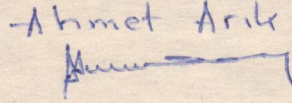 Ahmet Arık